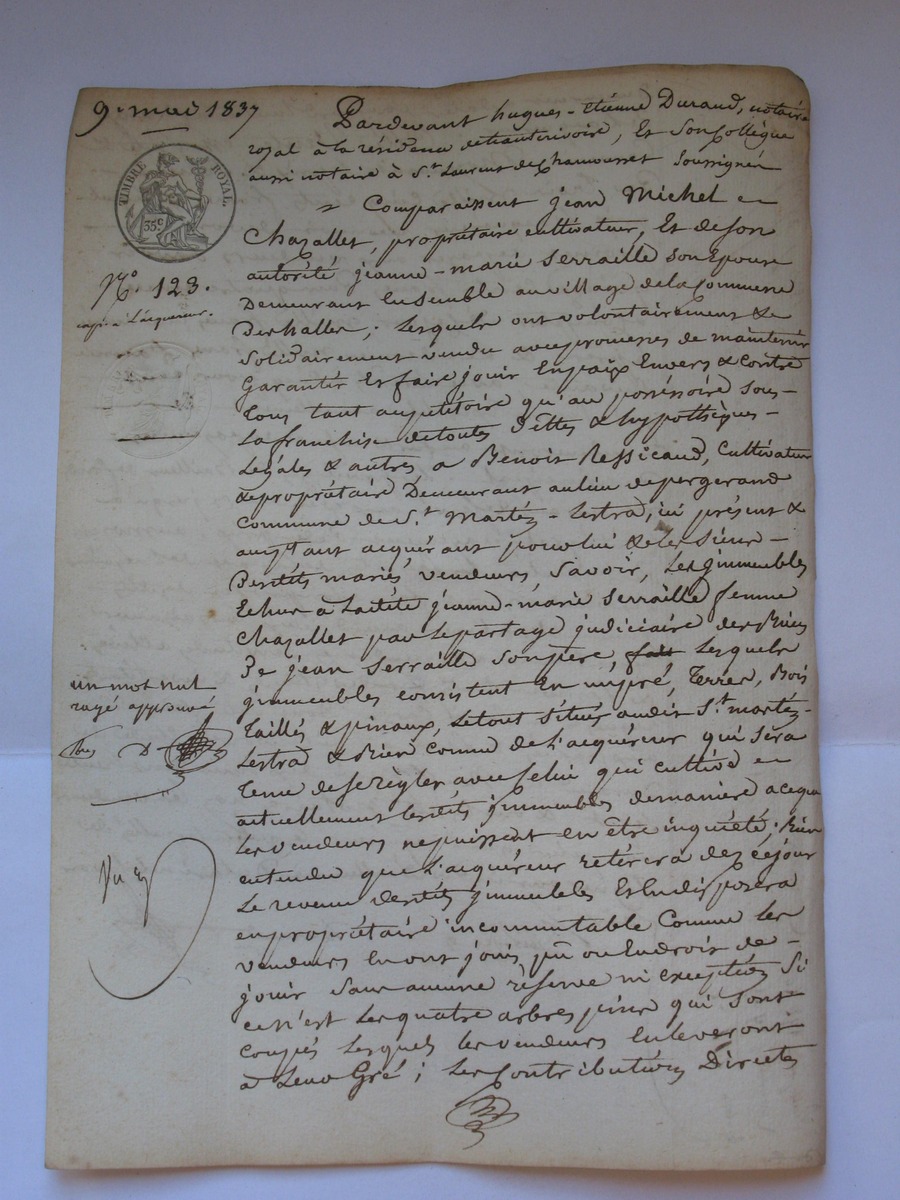 9. mai 1837
TIMBRE ROYAL
35c
N.o 123.
exp. à l'acquéreur.
Pardevant hugues-étienne Durand, notaire
royal à la résidence de hauterivoire, Et Son Collègue
aussi notaire à S.t Laurent de Chamousset Soussignés
= Comparaissent jean Michel =
Chazallet, propriétaire cultivateur, Et de Son
autorité jeanne-marie Serraille Son Epouse
Demeurant Ensemble au village de la Commune
Des halles; Lesquels ont volontairement &
Solidairement vendu avec promesses de maintenir
Garantir Et faire jouir En paix Envers & Contre
Tous tant au pétitoire qu'au possessoire Sous-
La franchise de toutes Dettes & hypothèques-
Légales & autres, a Benoit Ressicaud, Cultivateur
& propriétaire Demeurant au lieu de pergerand
Commune de S.t Martin-Lestra, ici présent &
acceptant acquérant pour lui & les Siens-
Desdits mariés vendeurs, Savoir, Les jmmeubles
Echus à Ladite jeanne-marie Serraille femme
Chazallet par Le partage judiciaire des Biens
De jean Serraille Son père, Lesquels
jmmeubles consistent En un pré, Terres, Bois
Taillis & pinaux, Le tout Situés audit S.t martin-
Lestra & Bien connu de L'acquéreur qui Sera
Tenu de Se règler avec Celui qui cultive =
actuellement lesdits jmmeubles de manière a ce que
Les vendeurs ne puissent en être inquiété; Bien
entendu que L'acquéreur retirera dez ce jour
Le revenu desdits jmmeubles Et En disposera
en propriétaire incommutable Comme les
vendeurs En ont joui, pû ou eu droit de-
jouir Sans aucune réserve ni exception Si
ce n'est Les quatre arbres pins qui Sont
Coupés Lesquels les vendeurs Enleveront
à Leur Gré; Les Contributions Directes
un mot nul
rayé approuvé
D